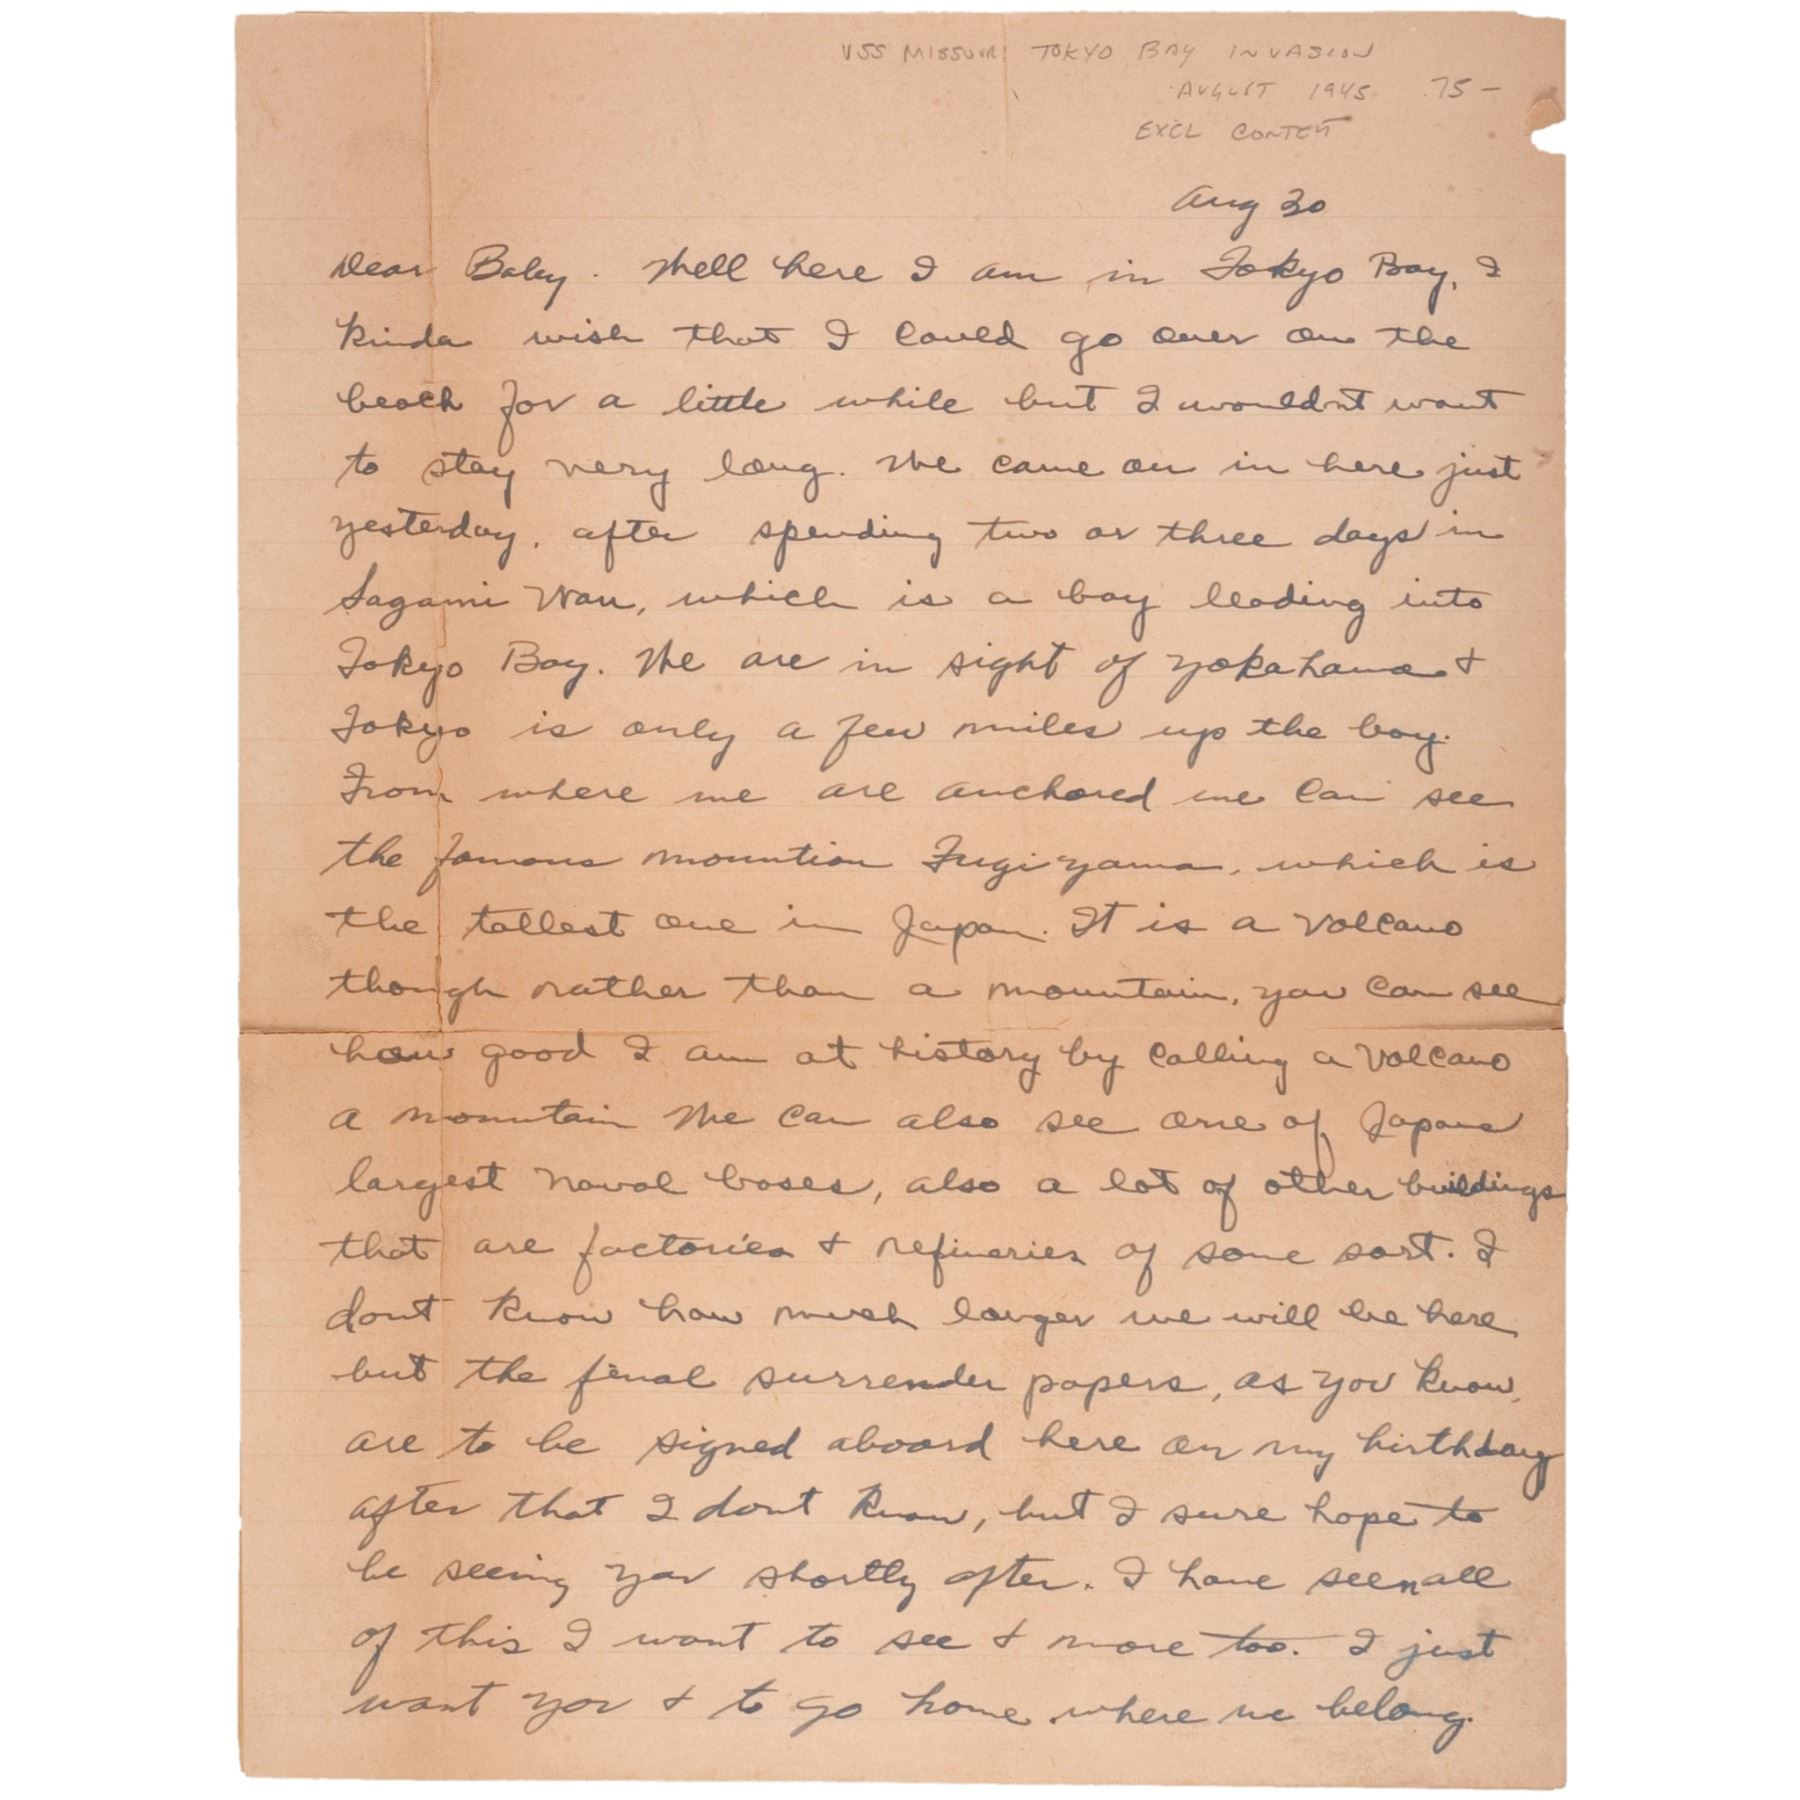 USS MISSOURI TOKYO BAY INVASION
AUGUST 1945 75-
EXCL CONTENT
Aug 30
Dear Baby. Well here I am in Tokyo Bay, I
kinda wish that I could go over on the
beach for a little while but I wouldnt want
to stay very long. We came on in here just
yesterday, after spending two or three days in
Sagami Wan, which is a bay leading into
Tokyo Bay. We are in sight of Yokahama &
Tokyo is only a few miles up the bay.
From where we are anchored we can see
the famous mountian Fugiyama, which is
the tallest one in Japan. It is a volcano
though rather than a mountain, you can see
how good I am at history by calling a volcano
a mountain We can also see one of Japans
largest naval bases, also a lot of other buildings
that are factories & refineries of some sort. I
dont know how much longer we will be here
but the final surrender papers, as you know,
are to be signed aboard here on my birthday
after that I dont know, but I sure hope to
be seeing you shortly after. I have seen all
of this I want to see & more too. I just
want you & to go home where we belong.